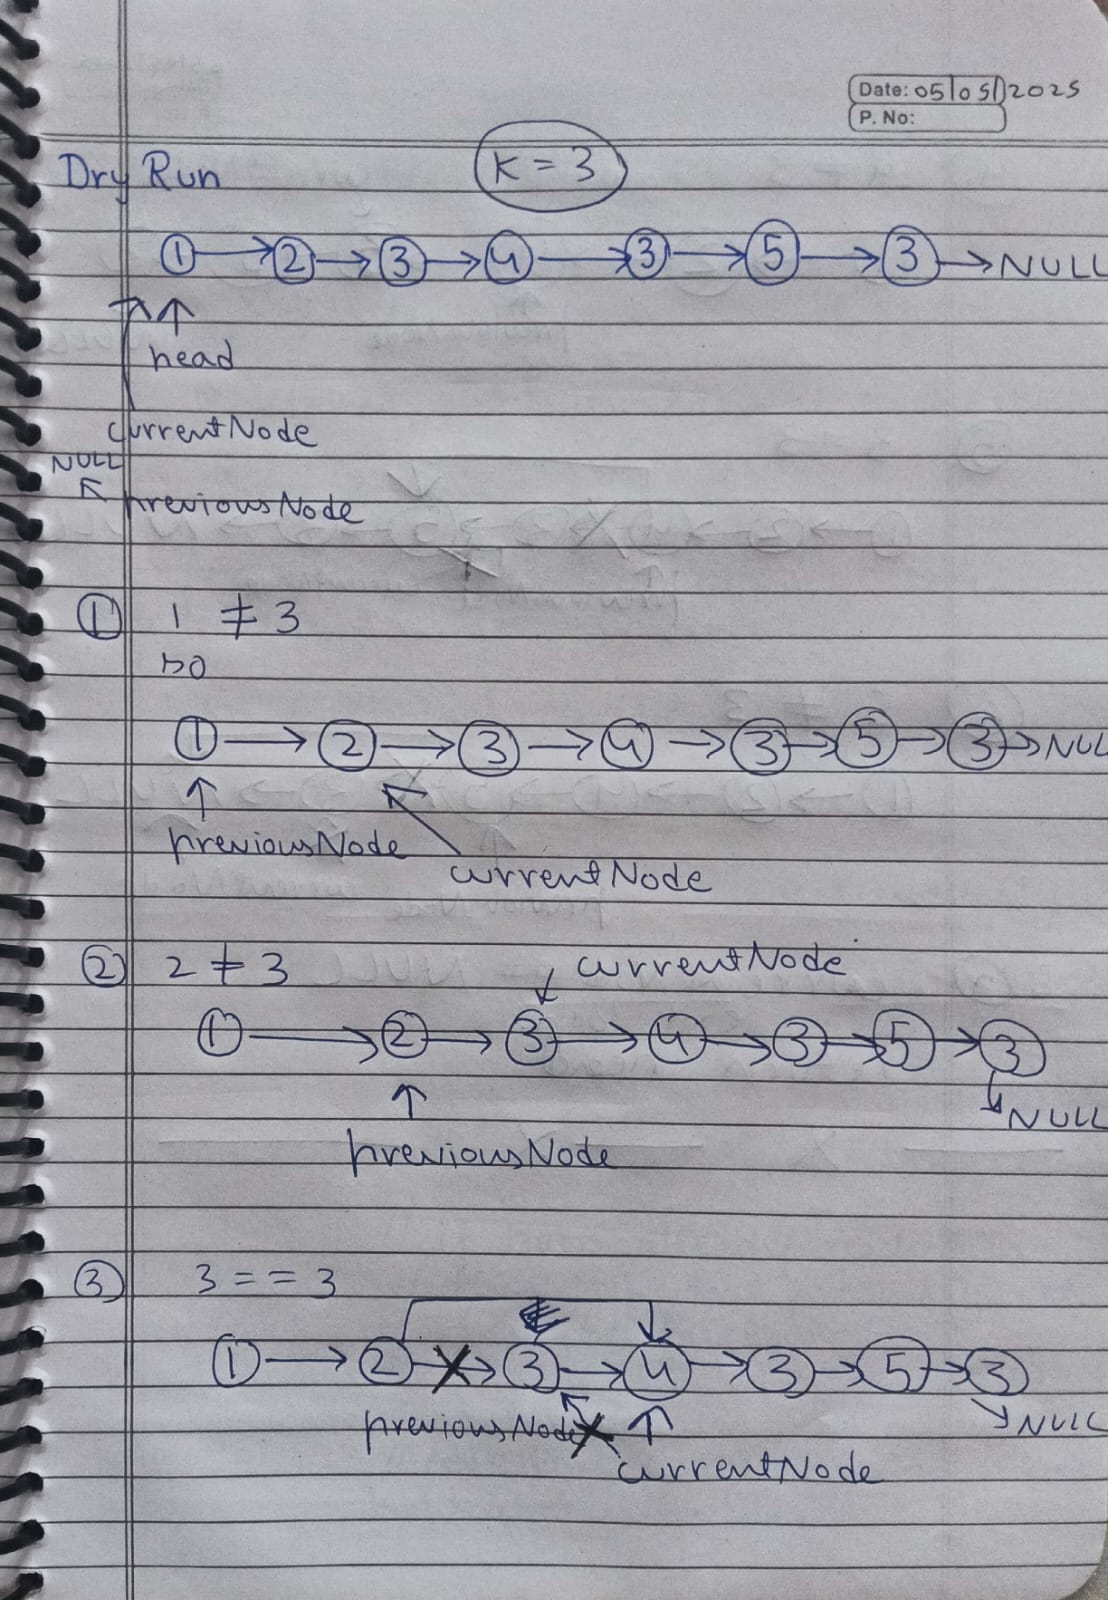 Date: 05/05/2025
P. No:
Dry Run K = 3
1 → 2 → 3 → 4 → 3 → 5 → 3 → NULL
head
currentNode
NULL
previousNode
1 1 ≠ 3
so
1 → 2 → 3 → 4 → 3 → 5 → 3 → NUL
previousNode
currentNode
2 2 ≠ 3 currentNode
1 → 2 → 3 → 4 → 3 → 5 → 3
NULL
previousNode
3 3 == 3
1 → 2 → 3 → 4 → 3 → 5 → 3
previousNode NULL
currentNode